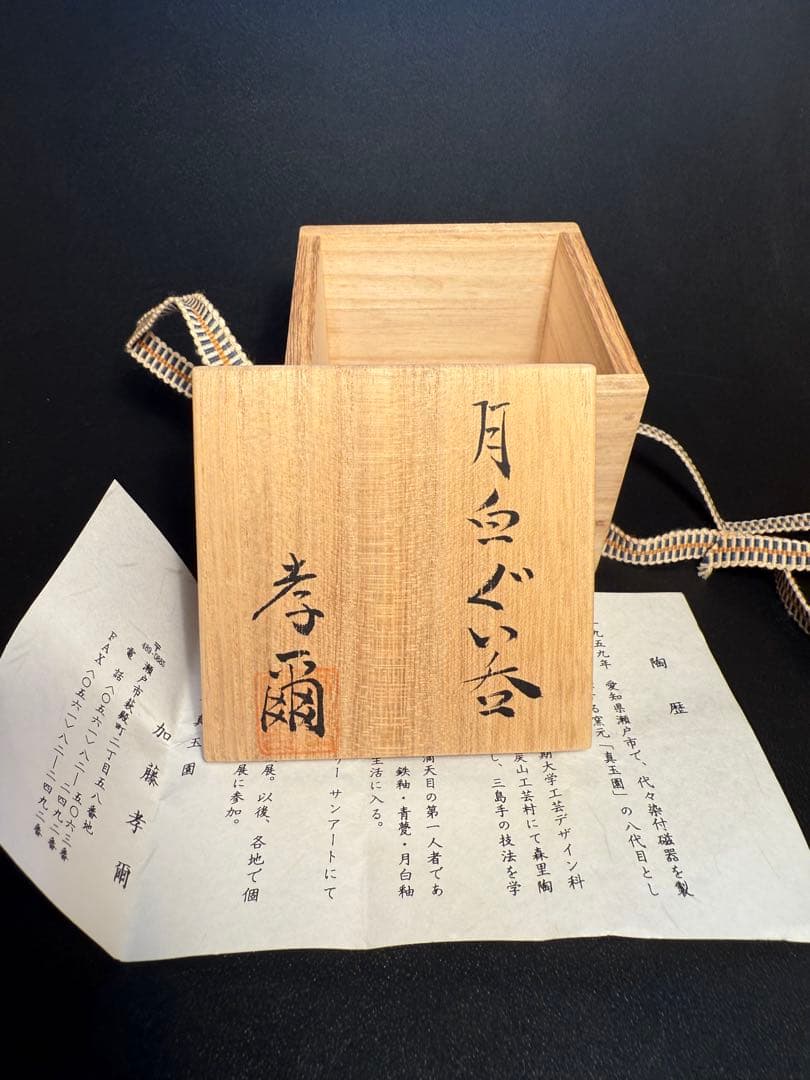 月白ぐい呑
孝爾
陶歴
一九五九年 愛知県瀬戸市で、代々染付磁器を製
る窯元「真玉園」の八代目とし
期大学工芸デザイン科
戻山工芸村にて森里陶
し、三島手の技法を学
滴天目の第一人者であ
鉄釉・青瓷・月白釉
生活に入る。
リー サンアートにて
展。以後、各地で個
展に参加。
真玉園
加藤孝爾
瀬戸市萩殿町二丁目五八番地
電話〈〇五六一〉八二―五〇六三番
FAX〈〇五六一〉八二―二四九二番